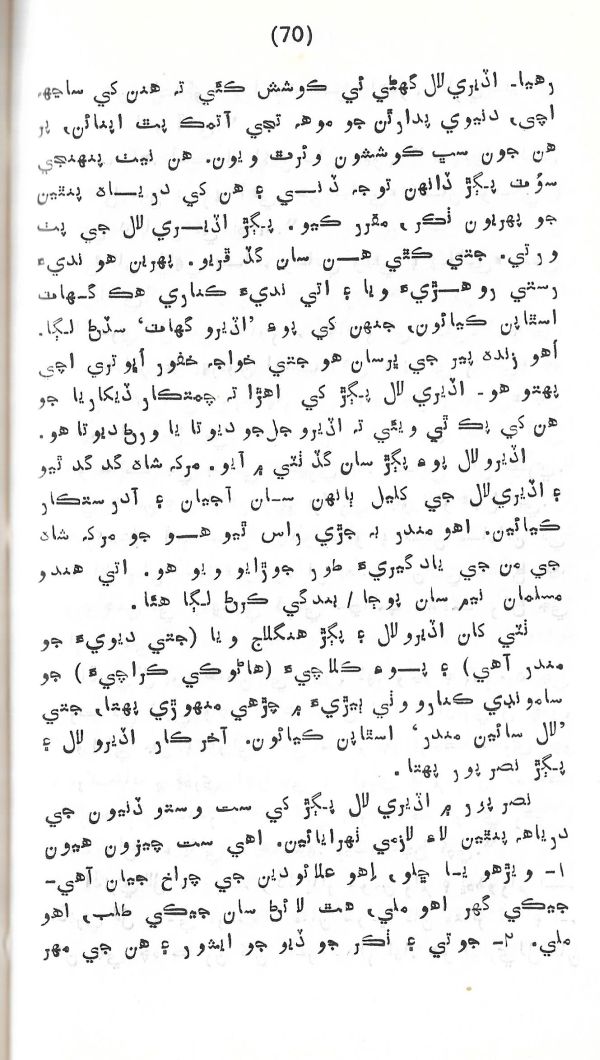 (70)
رهيا۔ اڏيري لال گهڻي ئي ڪوشش ڪئي ته هنن کي ساڃهه
اچي، دنيوي پدارٿن جو موهه تجي آتمڪ پٿ اپنائن، پر
هن جون سڀ ڪوششون وئرٿ ويون. هن نيٺ پنهنجي
سؤٽ پڳڙ ڏانهن توجهه ڏنـــي ۽ هن کي دريـــاهه پنٿين
جو پهريون ٺڪر، مقرر ڪيو. پڳڙ اڏيـــري لال جي پٺ
ورتي. جتي ڪٿي هـــن سان گڏ ڦريو. پهرين هو نديءَ
رستي روهـــڙيءَ ويا ۽ اتي نديءَ ڪناري هڪ گهاٽ
اسٿاپن ڪيائون، جنهن کي پوءِ ’اڏيرو گهاٽ‘ سڏڻ لڳا.
اُهو زنده پير جي ڀرسان هو جتي خواجه خضور اُڀوتري اچي
پهتو هو۔ اڏيري لال پڳڙ کي اهڙا ته چمتڪار ڏيکاريا جو
هن کي پڪ ٿي ويئي ته اڏيرو جل جو ديوتا يا ورڻ ديوتا هو.
اڏيرو لال پوءِ پڳڙ سان گڏ ٺٽي ۾ آيو. مرکه شاهه گد گد ٿيو
۽ اڏيري لال جي کليل ٻانهن ســان آجيان ۽ آدر ستڪار
ڪيائين. اهو مندر به جڙي راس ٿيو هـــو جو مرکه شاهه
جي من جي يادگيريءَ طور جوڙايو ويو هو. اتي هندو
مسلمان نيم سان پوڄا / بندگي ڪرڻ لڳا هئا.
ٺٽي کان اڏيرو لال ۽ پڳڙ هنگلاج ويا (جتي ديويءَ جو
مندر آهي) ۽ پـــوءِ ڪلاچيءَ (هاڻوڪي ڪراچيءَ) جو
سامونڊي ڪنارو وٺي ٻيڙيءَ ۾ چڙهي منهوڙي پهتا، جتي
’لال سائين مندر‘ اسٿاپن ڪيائون. آخرڪار اڏيرو لال ۽
پڳڙ نصرپور پهتا.
نصرپور ۾ اڏيري لال پڳڙ کي ست وستو ڏنيون جي
درياهه پنٿين لاءِ لازمي ٺهرايائين. اهي ست چيزون هيون
١۔ ويڙهو يــا ڇلو، اِهو علائودين جي چراخ جيان آهي۔
جيڪي گهر اهو ملي، هٿ لائڻ سان جيڪي طلب، اهو
ملي. ٢۔ جوتي ۽ ٺڪر جو ڏيو جو ايشور ۽ هن جي مهر